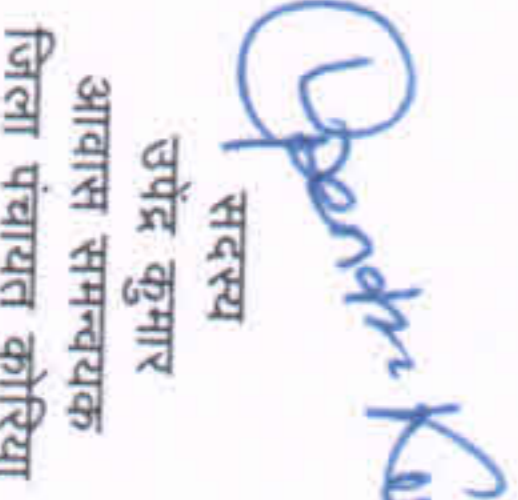 Upendra Ku
सदस्य
उपेंद्र कुमार
आवास समन्वयक
जिला पंचायत कोरिया